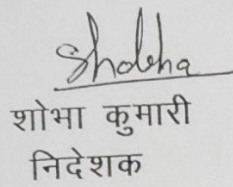 Shobha
शोभा कुमारी
निदेशक